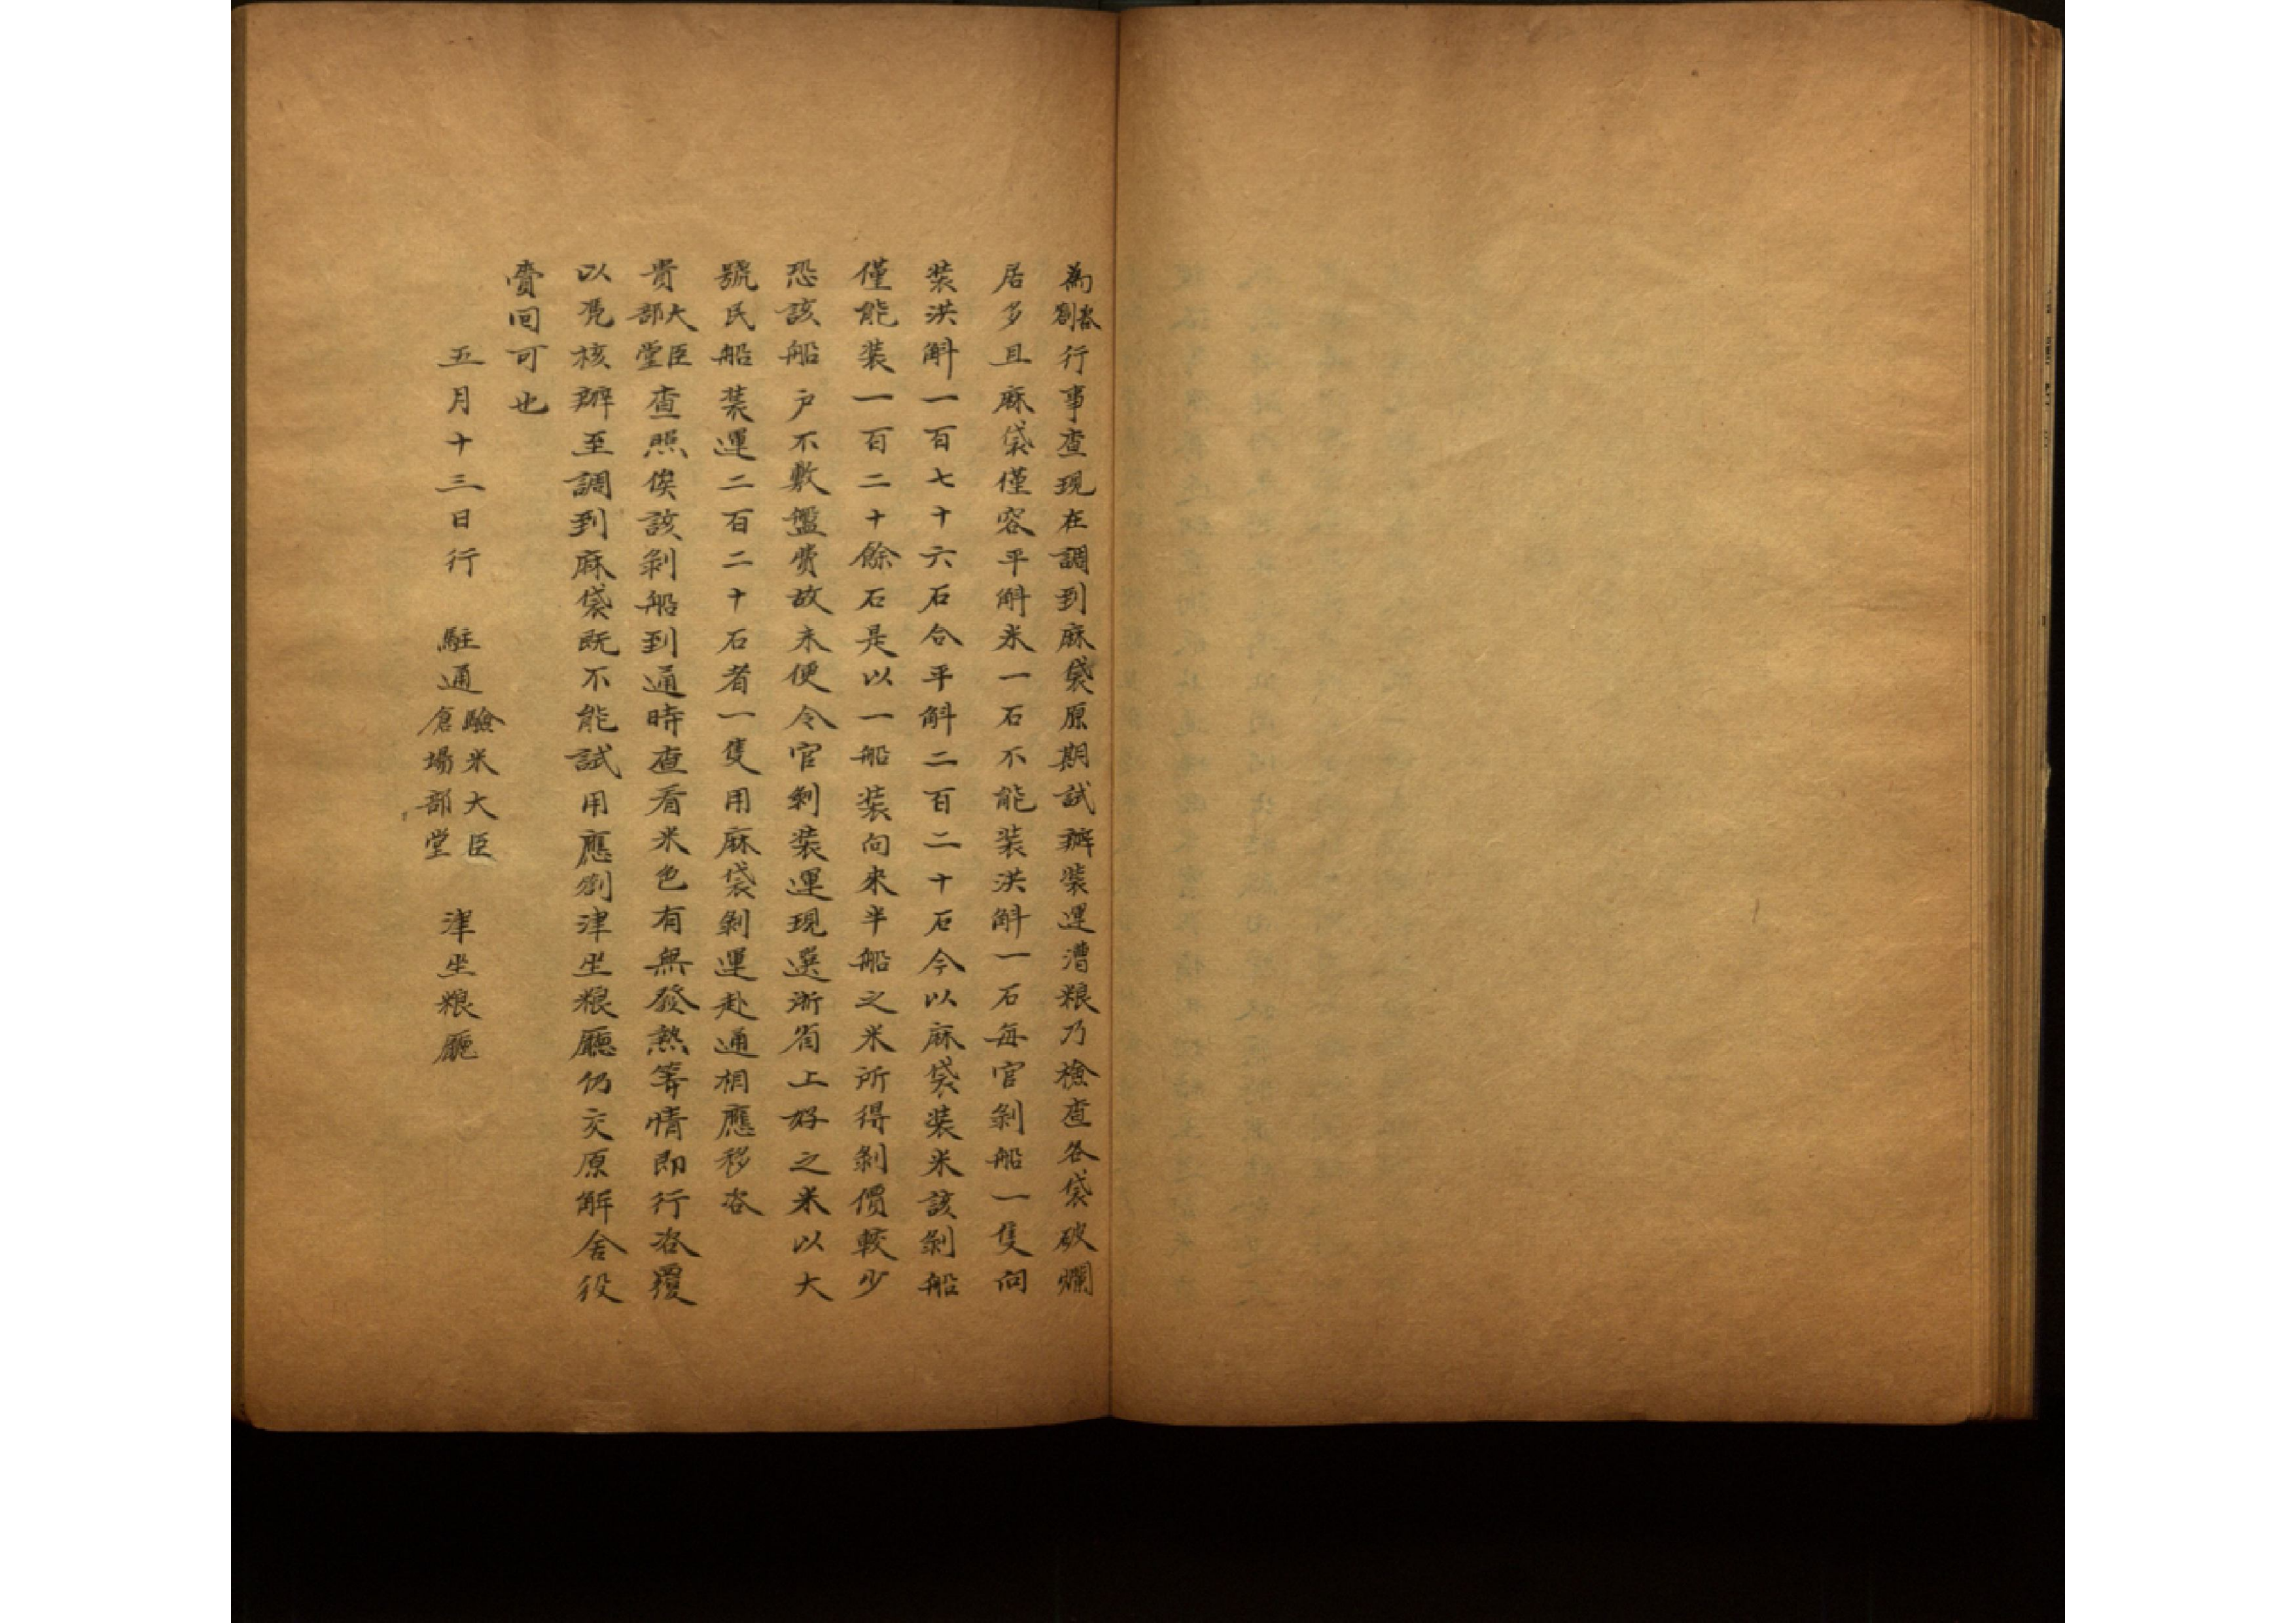 為咨劄行事查現在調到麻袋原期試辦裝運漕粮乃檢查各袋破爛
居多且麻袋僅容平斛米一石不能裝洪斛一石每官剝船一隻向
裝洪斛一百七十六石合平斛二百二十石今以麻袋裝米該剝船
僅能裝一百二十餘石是以一船裝向來半船之米所得剝價較少
恐該船户不敷盤費故未便令官剝裝運現選浙省上好之米以大
號民船装運二百二十石者一隻用麻袋剝運赴通相應移咨
貴大臣部堂查照俟該剝船到通時查看米色有無發熱等情即行咨覆
以凴核辦至調到麻袋既不能試用應劄津坐粮廳仍交原解舍役
賫回可也
五月十三日行 駐通驗米大臣倉場部堂 津坐粮廳